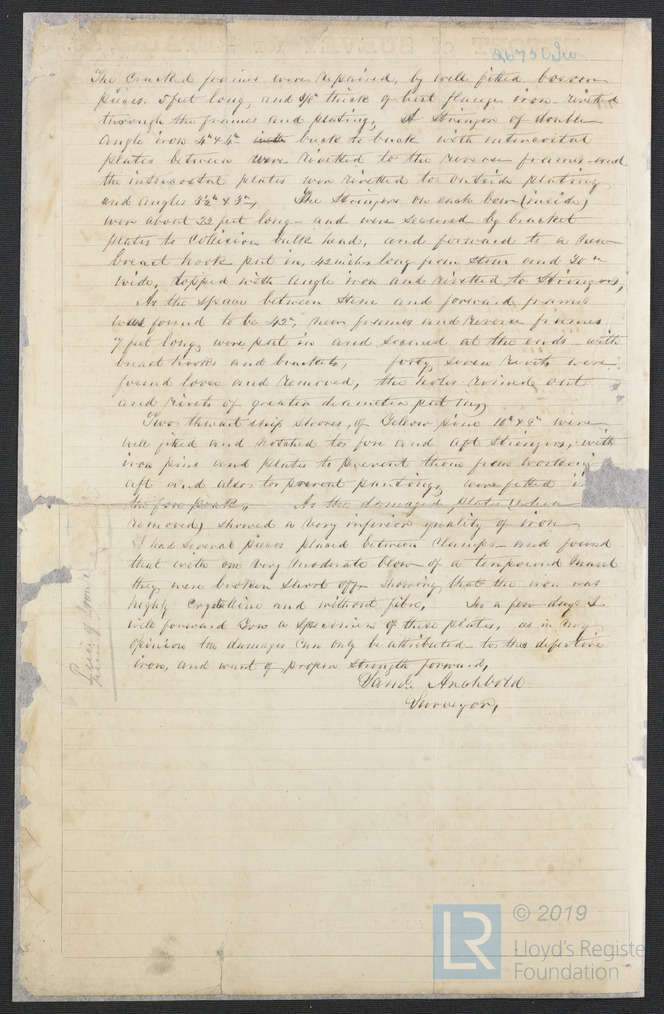 26750 Iro
The cracked frames were repaired, by well fitted bosom
pieces 5 feet long, and 3/8" thick of best flange iron rivetted
through the frames and plating, A Stringer of double
Angle iron 4" x 4" back to back with intercostal
plates between were rivetted to the reverse frames and
the intercostal plates were rivetted to outside plating
and angles 3½" x 3", The Stringers on each bow (inside)
were about 22 feet long and were secured by bracket
plates to Collision bulk head, and forward to a new
breast hook put in, 42 inches long from Stem and 20 in
wide, topped with angle iron and rivetted to Stringers,
As the space between Stem and forward frames
was found to be 42", new frames and reverse frames
7 feet long, were put in and secured at the ends with
breast hooks and brackets, forty seven rivets were
found loose, and removed, the holes rimed out
and rivets of greater diameter put in,
Two thwart ship Shores, of Yellow pine 10" x 9" were
well fitted and notched to fore and aft Stringers, with
iron pins and plates to prevent them from working
aft and also to prevent panting, were fitted in
the fore peak, As the damaged plates (when
removed) showed a very inferior quality of iron
I had several pieces placed between Clamps and found
that with one very moderate blow of a ten pound maul
they were broken short off, showing that the iron was
highly crystaline and without fibre, In a few days I
will forward you a specimen of these plates, as in my
Opinion the damages can only be attributed to this defective
iron, and want of proper strength forward,
Archbold
Surveyor,
© 2019
LR
Lloyd's Registe
Foundation